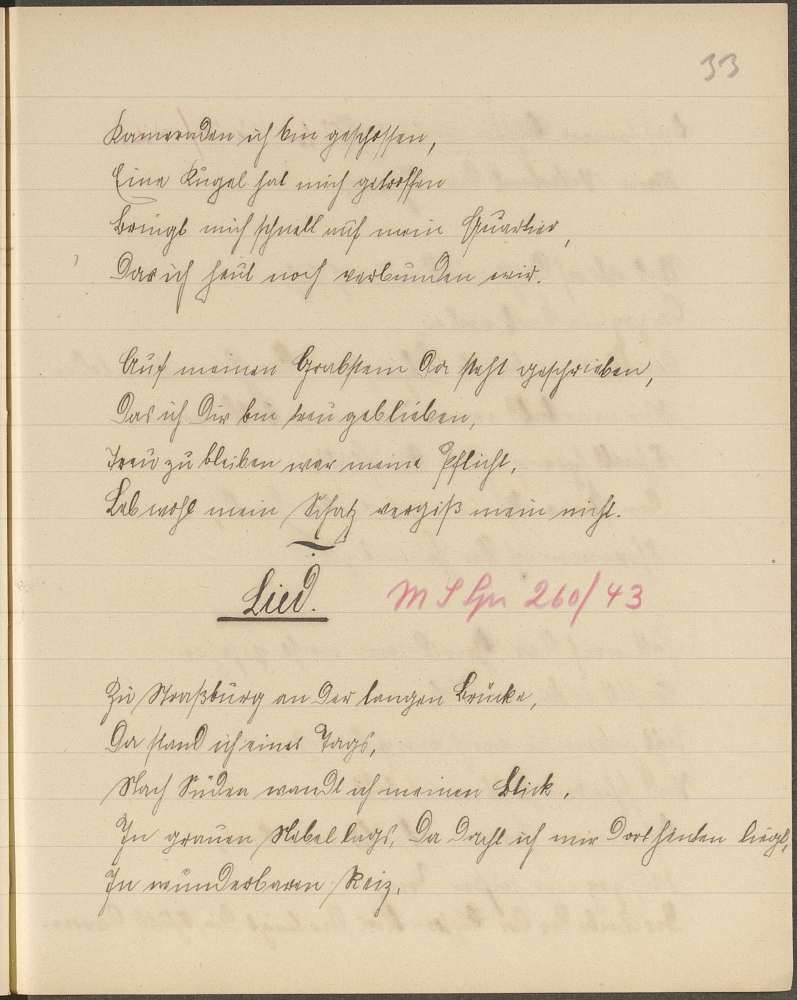 33
Kameraden ich bin geschossen,
Eine Kugel hat mich getroffen
Bringt mich schnell auf mein Quartier,
Das ich heut noch verbunden wir.
Auf meinen Grabstein da steht geschrieben,
Das ich Dir bin treu geblieben,
Treu zu bleiben war meine Pflicht,
Leb wohl mein Schatz vergiß mein nicht.
Lied. 260/43
Zu Straßburg an der langen Brücke,
Da stand ich eines Tags,
Nach Süden wandt ich meinen Blick,
In grauen Nebel lags, Da dacht ich mir Dort hinten liegt,
In wunderbaren Reiz,